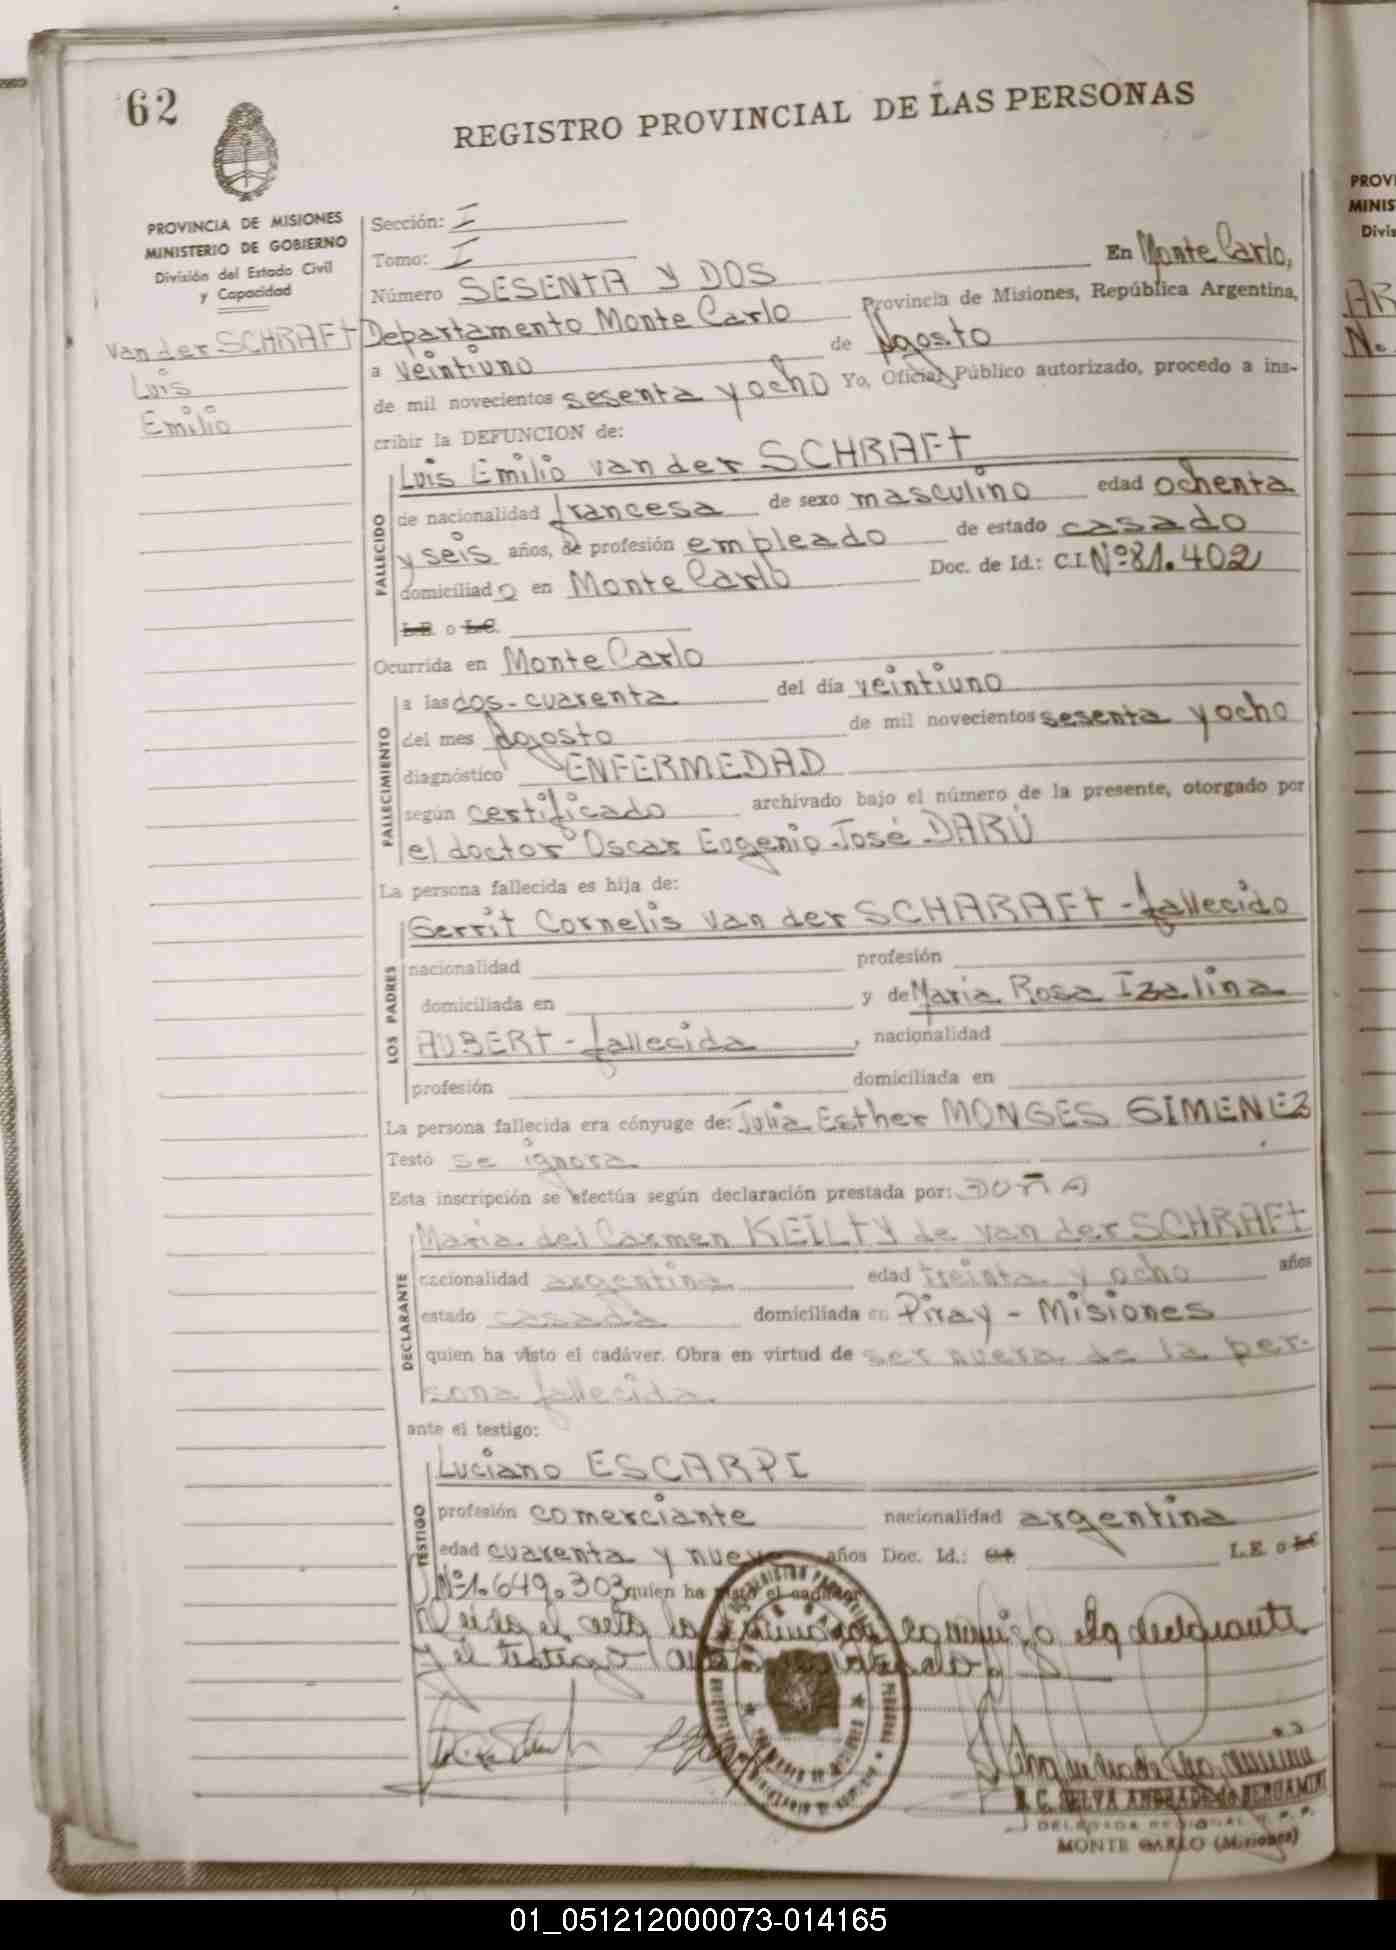 62
REGISTRO PROVINCIAL DE LAS PERSONAS
PROVINCIA DE MISIONES
MINISTERIO DE GOBIERNO
División del Estado Civil
y Capacidad
van der SCHRAFt
Luis
Emilio
Sección: I
Tomo: I
Número SESENTA Y DOS En Monte Carlo,
Departamento Monte Carlo Provincia de Misiones, República Argentina,
a veintiuno de Agosto
de mil novecientos sesenta y ocho Yo, Oficial Público autorizado, procedo a ins-
cribir la DEFUNCION de:
FALLECIDO
Luis Emilio van der SCHRAFt
de nacionalidad francesa de sexo masculino edad ochenta
y seis años, de profesión empleado de estado casado
domiciliado en Monte Carlo Doc. de Id.: C.I. Nº 81.402
L.E. o L.C.
Ocurrida en Monte Carlo
FALLECIMIENTO
a las dos-cuarenta del día veintiuno
del mes Agosto de mil novecientos sesenta y ocho
diagnóstico ENFERMEDAD
según certificado archivado bajo el número de la presente, otorgado por
el doctor Oscar Eugenio José DARÚ
La persona fallecida es hija de:
LOS PADRES
Gerrit Cornelis van der SCHARAFt - fallecido
nacionalidad profesión
domiciliada en y de Maria Rosa Izalina
AUBERt - fallecida, nacionalidad
profesión domiciliada en
La persona fallecida era cónyuge de: Julia Esther MONGES GIMENEZ
Testó se ignora
Esta inscripción se efectúa según declaración prestada por: DOÑA
DECLARANTE
Maria del Carmen KEILtY de van der SCHRAFt
nacionalidad argentina edad treinta y ocho años
estado casada domiciliada en Piray - Misiones
quien ha visto el cadáver. Obra en virtud de ser nuera de la per-
sona fallecida
ante el testigo:
TESTIGO
Luciano ESCARPI
profesión comerciante nacionalidad argentina
edad cuarenta y nueve años Doc. Id.: C.I. L.E. o L.C.
Nº 1.649.303 quien ha visto el cadáver
Leida el acta la firman conmigo la declarante
y el testigo
S. C. SELVA ANDRADE de BERGAMINI
DELEGADA REGIONAL R. P. P.
MONTE CARLO (Misiones)
PROVI
MINIS
Divis
AR
N.
01_051212000073-014165